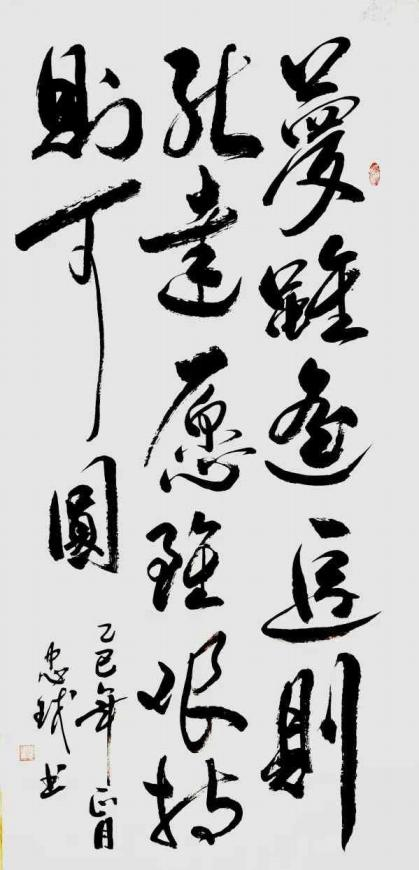 夢雖遥追則
能達愿雖艰持
則可圓
乙巳年正月
忠书